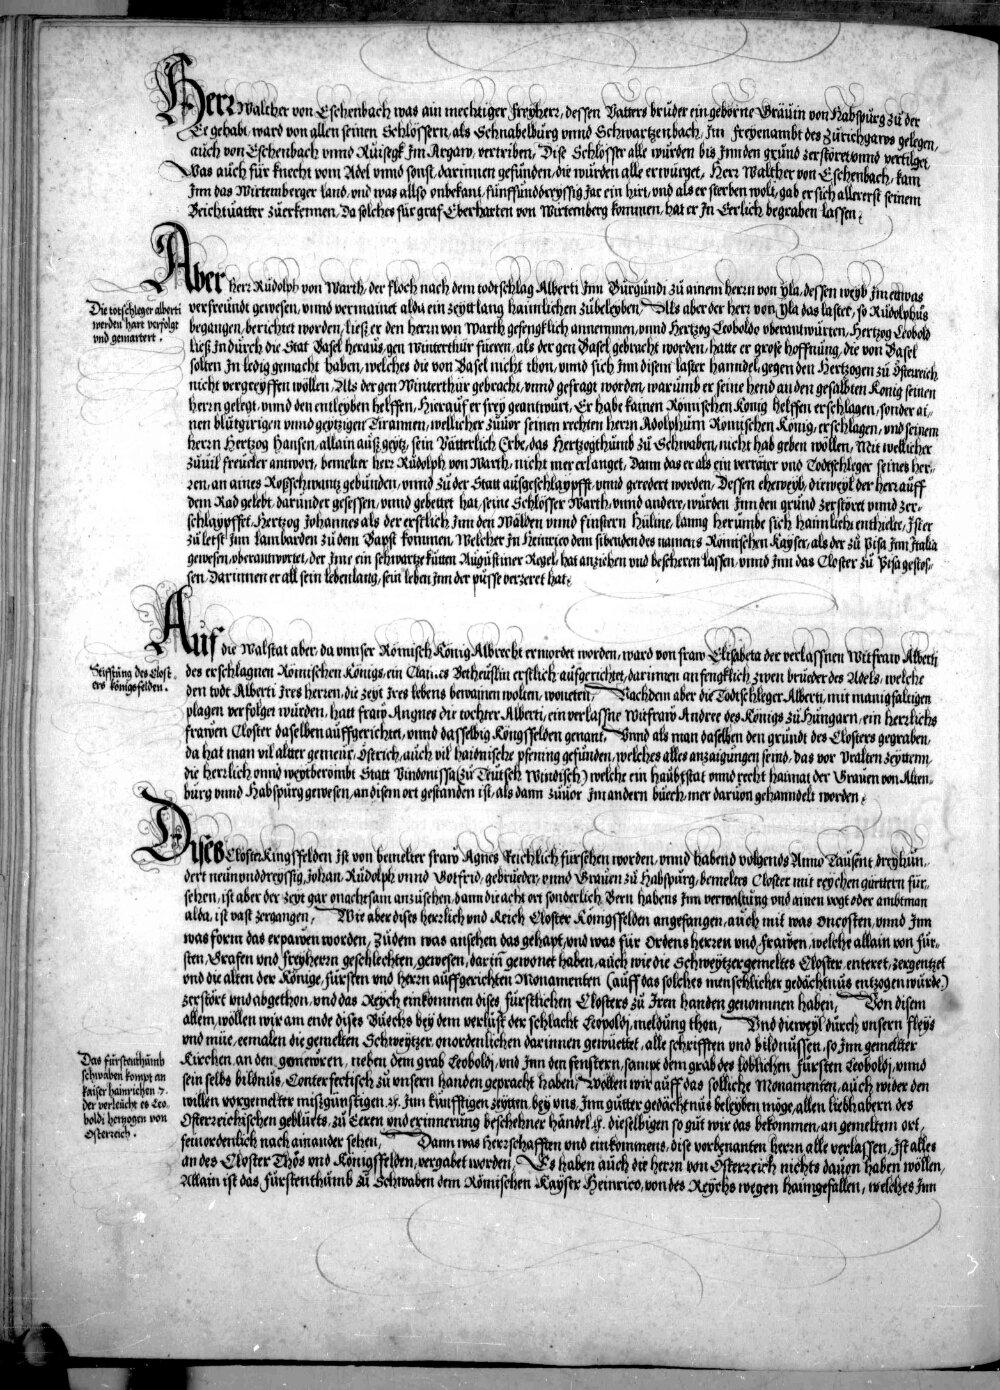 Herr Walther von Eschenbach was ain mechtiger Freyherr, dessen Vatters brůder ein geborne Gräuin von Habspurg zů der
Ee gehabt, ward von allen seinen Schlössern, als Schnabelburg vnnd Schwartzenbach, Im Freyenambt des Zürichgaws gelegen,
auch von Eschenbach vnnd Rüisegk Im Argaw, vertriben, Dise Schlösser alle wurden bis Inn den grund zerstöret vnnd vertilget
Was auch für knecht vom Adel vnnd sonst, darinnen gefunden, die wurden alle erwürget, Herr Walther von Eschenbach, kam
Inn das Wirtemberger land, vnd was allso onbekant, fünffunddreyssig Jar ein hirt, vnd als er sterben wolt, gab er sich allererst seinem
Beichtuatter zůerkennen, Da solches für graf Eberharten von Wirtemberg kommen, hat er In Eerlich begraben lassen,
Aber Herr Růdolph von Warth, der floch nach dem todtschlag Alberti Inn Burgundi zů ainem herrn von Yla, dessen weyb Im etwas
Die totschleger alberti
werden hart verfolgt
vnd gemartert.
verfreundt gewesen, vnnd vermainet alda ein zeytt lang haimlichen zůbeleyben, Als aber der herr von Yla das laster, so Růdolphus
begangen, berichtet worden, ließ er den herrn von Warth gefengklich annemmen, vnnd Hertzog Leoboldo oberantwürten, Hertzog Leobold
ließ In durch die Stat Basel heraus, gen Winterthur füeren, als der gen Basel gebracht worden, hatte er grose hoffnung, die von Basel
solten In ledig gemacht haben, welches die von Basel nicht thon, vnnd sich Inn disem laster hanndel, gegen den Hertzogen zů Osterreich
nicht vergreyffen wöllen, Als der gen Winterthur gebracht, vnnd gefragt worden, warumb er seine hend an den gesalbten König seinen
herrn gelegt, vnnd den entleyben helffen, Hierauf er frey geantwurt, Er habe kainen Römischen König helffen erschlagen, sonder ai-
nen blůtgirigen vnnd geytzigen Tirannen, wellicher zůuor seinen rechten herrn Adolphum Römischen König, erschlagen, vnd seinem
herrn Hertzog Hansen, allain auß geytz, sein Vätterlich Erbe, das Hertzogthumb zů Schwaben, nicht hab geben wöllen, Mit wellicher
zůuil freueler antwort, bemelter herr Růdolph von Warth, nicht mer erlanget, Dann das er als ein verräter vnd Todtschleger seines her-
ren, an aines Roßschwantz gebunden, vnnd zů der Statt ausgeschlaypfft, vnnd geredert worden, Dessen eheweyb, dieweyl der herr auff
dem Rad gelebt, darunder gesessen, vnnd gebettet hat, seine Schlösser Warth, vnnd andere, wurden Inn den grund zerstöret vnnd zer-
schlaypffet, Hertzog Johannes als der erstlich Inn den Wälden vnnd finstern Hülinen, lanng herumbe sich haimlich enthielte, Ist er
zůletst Inn Lambarden zů dem Bapst kommen, Welcher In Heinrico dem sibenden des namens Römischen Kayser, als der zů Pisa Inn Italia
gewesen, oberantwortet, der Ime ein schwartze kutten Augustiner Regel, hat anziehen vnd bescheren lassen, vnnd Inn das Closter zů Pisa gestos-
sen, Darinnen er all sein lebenlang, sein leben Inn der pusse verzeret hat,
Auf die Walstat aber, da vnnser Römisch König Albrecht ermordet worden, ward von fraw Elisabeta der verlassnen Witfraw Alberti
Stifftung des Clost-
ers königsfelden.
des erschlagnen Römischen Königs, ein Betheuslin erstlich aufgerichtet, darinnen anfengklich zwen brüeder des Adels, welche
den todt Alberti Ires herren, die zeyt Ires lebens bewainen wolten, woneten, Nachdem aber die Todtschleger Alberti, mit manigfaltigen
plagen verfolget wurden, hatt fraw Angnes die tochter Alberti, ein verlassne Witfraw Andree des Königs zů Hungarn, ein herrlichs
frawen Closter daselben auffgerichtet, vnnd dasselbig Königsfelden genant, Vnnd als man daselben den grundt des Closters gegraben,
da hat man vil alter gemeur, Östrich, auch vil haidnische pfening gefunden, welches alles anzaigungen seind, das vor Vralten zeytten,
die herrlich vnnd weytberömbt Statt Vindonissa (zů Teutsch Windisch) welche ein haubtstat vnnd recht haimat der Grauen von Alten-
burg vnnd Habspurg gewesen, an disem ort gestanden ist, als dann zůuor Im andern bůech, mer daruon gehanndelt worden,
Dises Closter Kingsfelden Ist von bemelter fraw Agnes Reichlich fürsehen worden, vnnd habend volgends Anno Tausent dreyhun-
dert neunvnddreyssig, Johan, Růdolph vnnd Gotfrid, gebrüeder, vnnd Grauen zů Habspurg, bemeltes Closter mit reychen güettern für-
sehen, ist aber der zeyt gar onachtsam anzůsehen, dann die acht ort sonderlich Bern habens Inn verwaltung vnd ainen vogt oder ambtman
alda, ist vast zergangen, Wie aber dises herrlich vnd Reich Closter Königsfelden angefangen, auch mit was oncosten, vnnd Inn
was form das erpawen worden, Zůdem was ansehen das gehapt, vnd was für Ordens herren vnd frawen, welche allain von für-
sten, Grafen vnd freyherrn geschlechten, gewesen, dar in gewonet haben, auch wie die Schweytzer gemeltes Closter, enteret, zergentzet
vnd die alten der Könige, fürsten vnd herrn auffgerichten Monamenten (auff das solches menschlicher gedächtnus entzogen wurde)
zerstört vnd abgethon, vnd das Reych einkommen dises, fürstlichen Closters zů Iren handen genommen haben, Von disem
allem, wöllen wir am ende dises Bůechs bey dem verlust der schlacht Leopoldi, meldung thon, Vnd dieweyl durch vnsern fleys
vnd müe, eemalen die gemelten Schweytzer, onordenlichen darinnen gewüettet, alle schrifften vnd bildnussen, so Inn gemelter
Kirchen, an den gemewren, neben dem grab Leoboldi, vnd Inn den fenstern, sampt dem grab des löblichen fürsten Leoboldi, vnnd
Das fürstenthumb
schwaben kompt an
kaiser hainrichen 7.
der verleücht es Leo-
boldi hertzogen von
Osterreich.
sein selbs bildnus, Conterfectisch zů vnsern handen gepracht haben, Wöllen wir auff das solliche Monamenten, auch wider den
willen vorgemelter miszgünstigen, rc. Inn künfftigen zeytten, bey vns, Inn gůtter gedächtnus beleyben möge, allen liebhabern des
Osterreichischen geblüets, zů Eeren vnd erinnerung beschehner händel, rc. dieselbigen so gůt wir das bekommen, an gemeltem ort,
fein ordenlich nach ainander setzen, Dann was Herrschafften vnd einkommens, dise vorbenanten herrn alle verlassen, Ist alles
an des Closter Thös vnd Königsfelden, vergabet worden, Es haben auch die herrn von Osterreich nichts dauon haben wöllen,
Allain ist das, fürstenthumb zů Schwaben dem Römischen Kayser Heinrico, von des Reychs wegen haimgefallen, welches Inn